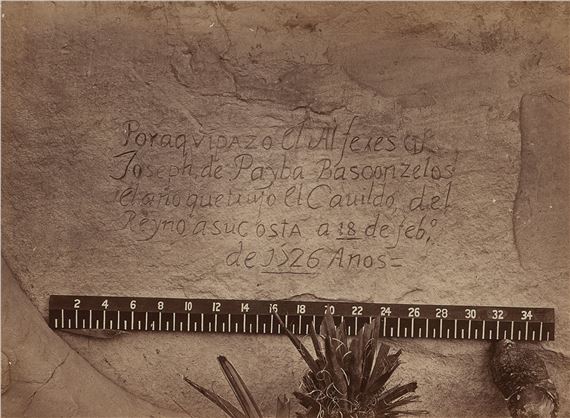 Por aqui pazo el Alferes Dn
Joseph de Payba Basconzelos
el año que trujo el Cauildo del
Reyno a su costa a 18 de febo
de 1526 Años=
2 4 6 8 10 12 14 16 18 20 22 24 26 28 30 32 34